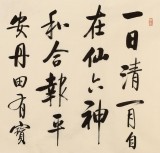 一日清閒自
在仙六神
和合報平
安丹田有寶